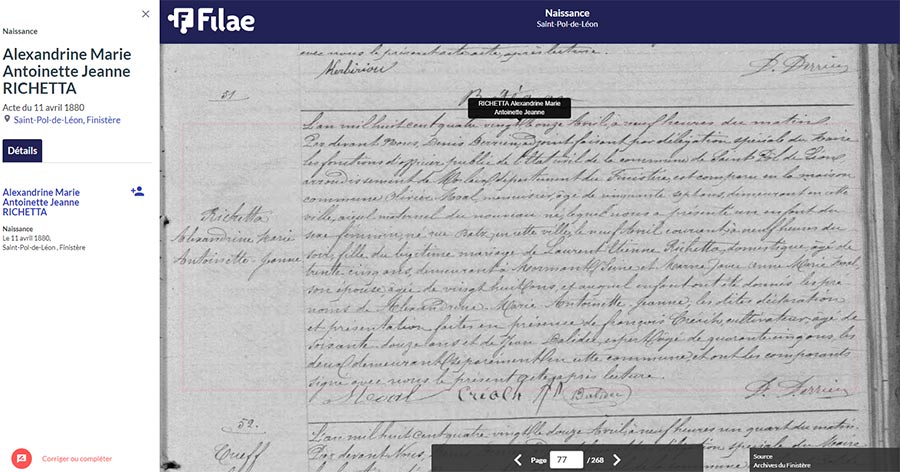 Naissance
Alexandrine Marie
Antoinette Jeanne
RICHETTA
Acte du 11 avril 1880
Saint-Pol-de-Léon, Finistère
Détails
Alexandrine Marie
Antoinette Jeanne
RICHETTA
Naissance
Le 11 avril 1880,
Saint-Pol-de-Léon , Finistère
Corriger ou compléter
Filae
Naissance
Saint-Pol-de-Léon
avec nous le présent acte après lecture.
D. Derrien
51
RICHETTA Alexandrine Marie
Antoinette Jeanne
Richetta
Alexandrine Marie
Antoinette-Jeanne
L'an mil huit cent quatre vingt le onze Avril, à neuf heures du matin
Par devant Nous, Denis Derrien, adjoint faisant par délégation spéciale du Maire
les fonctions d'officier public de l'Etat civil de la commune de Saint Pol de Léon
arrondissement de Morlaix, département du Finistère, est comparu en la maison
commune Olivier Moal, menuisier, âgé de cinquante sept ans, demeurant en cette
ville, aïeul maternel du nouveau né, lequel nous a présenté un enfant du
sexe féminin, né rue Batz, en cette ville, le neuf Avril courant à neuf heures du
soir, fille du légitime mariage de Laurent Etienne Richetta, domestique, âgé de
trente cinq ans, demeurant à et Marie Jeanne Marie Moal,
son épouse âgée de vingt huit ans, et auquel enfant ont été donnés les pré
noms de Alexandrine Marie Antoinette Jeanne, les dites déclaration
et présentation faites en présence de françois Créach, cultivateur, âgé de
soixante douze ans et de Jean Balidec, expert, âgé de quarante cinq ans, les
deux demeurant séparément en cette commune, et ont les comparants
signé avec nous le présent acte après lecture.
Moal Créach Balidec D. Derrien
52.
Cueff
L'an mil huit cent quatre vingt le douze Avril, à neuf heures un quart du matin.
Par devant Nous,
Page 77 / 268
Source
Archives du Finistère